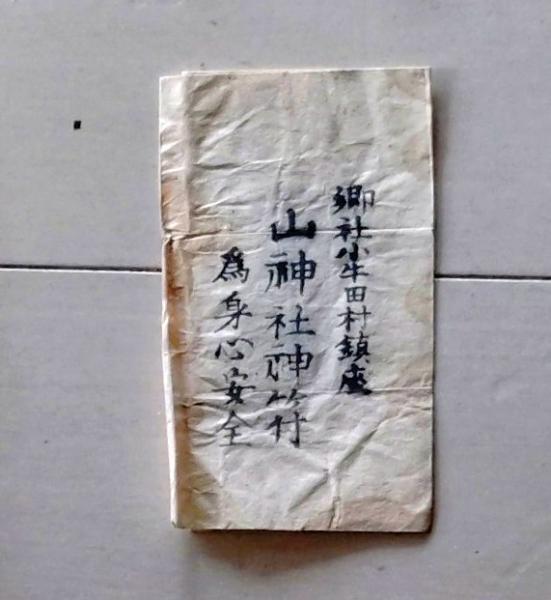 郷社小牛田村鎮座
山神社神符
為身心安全